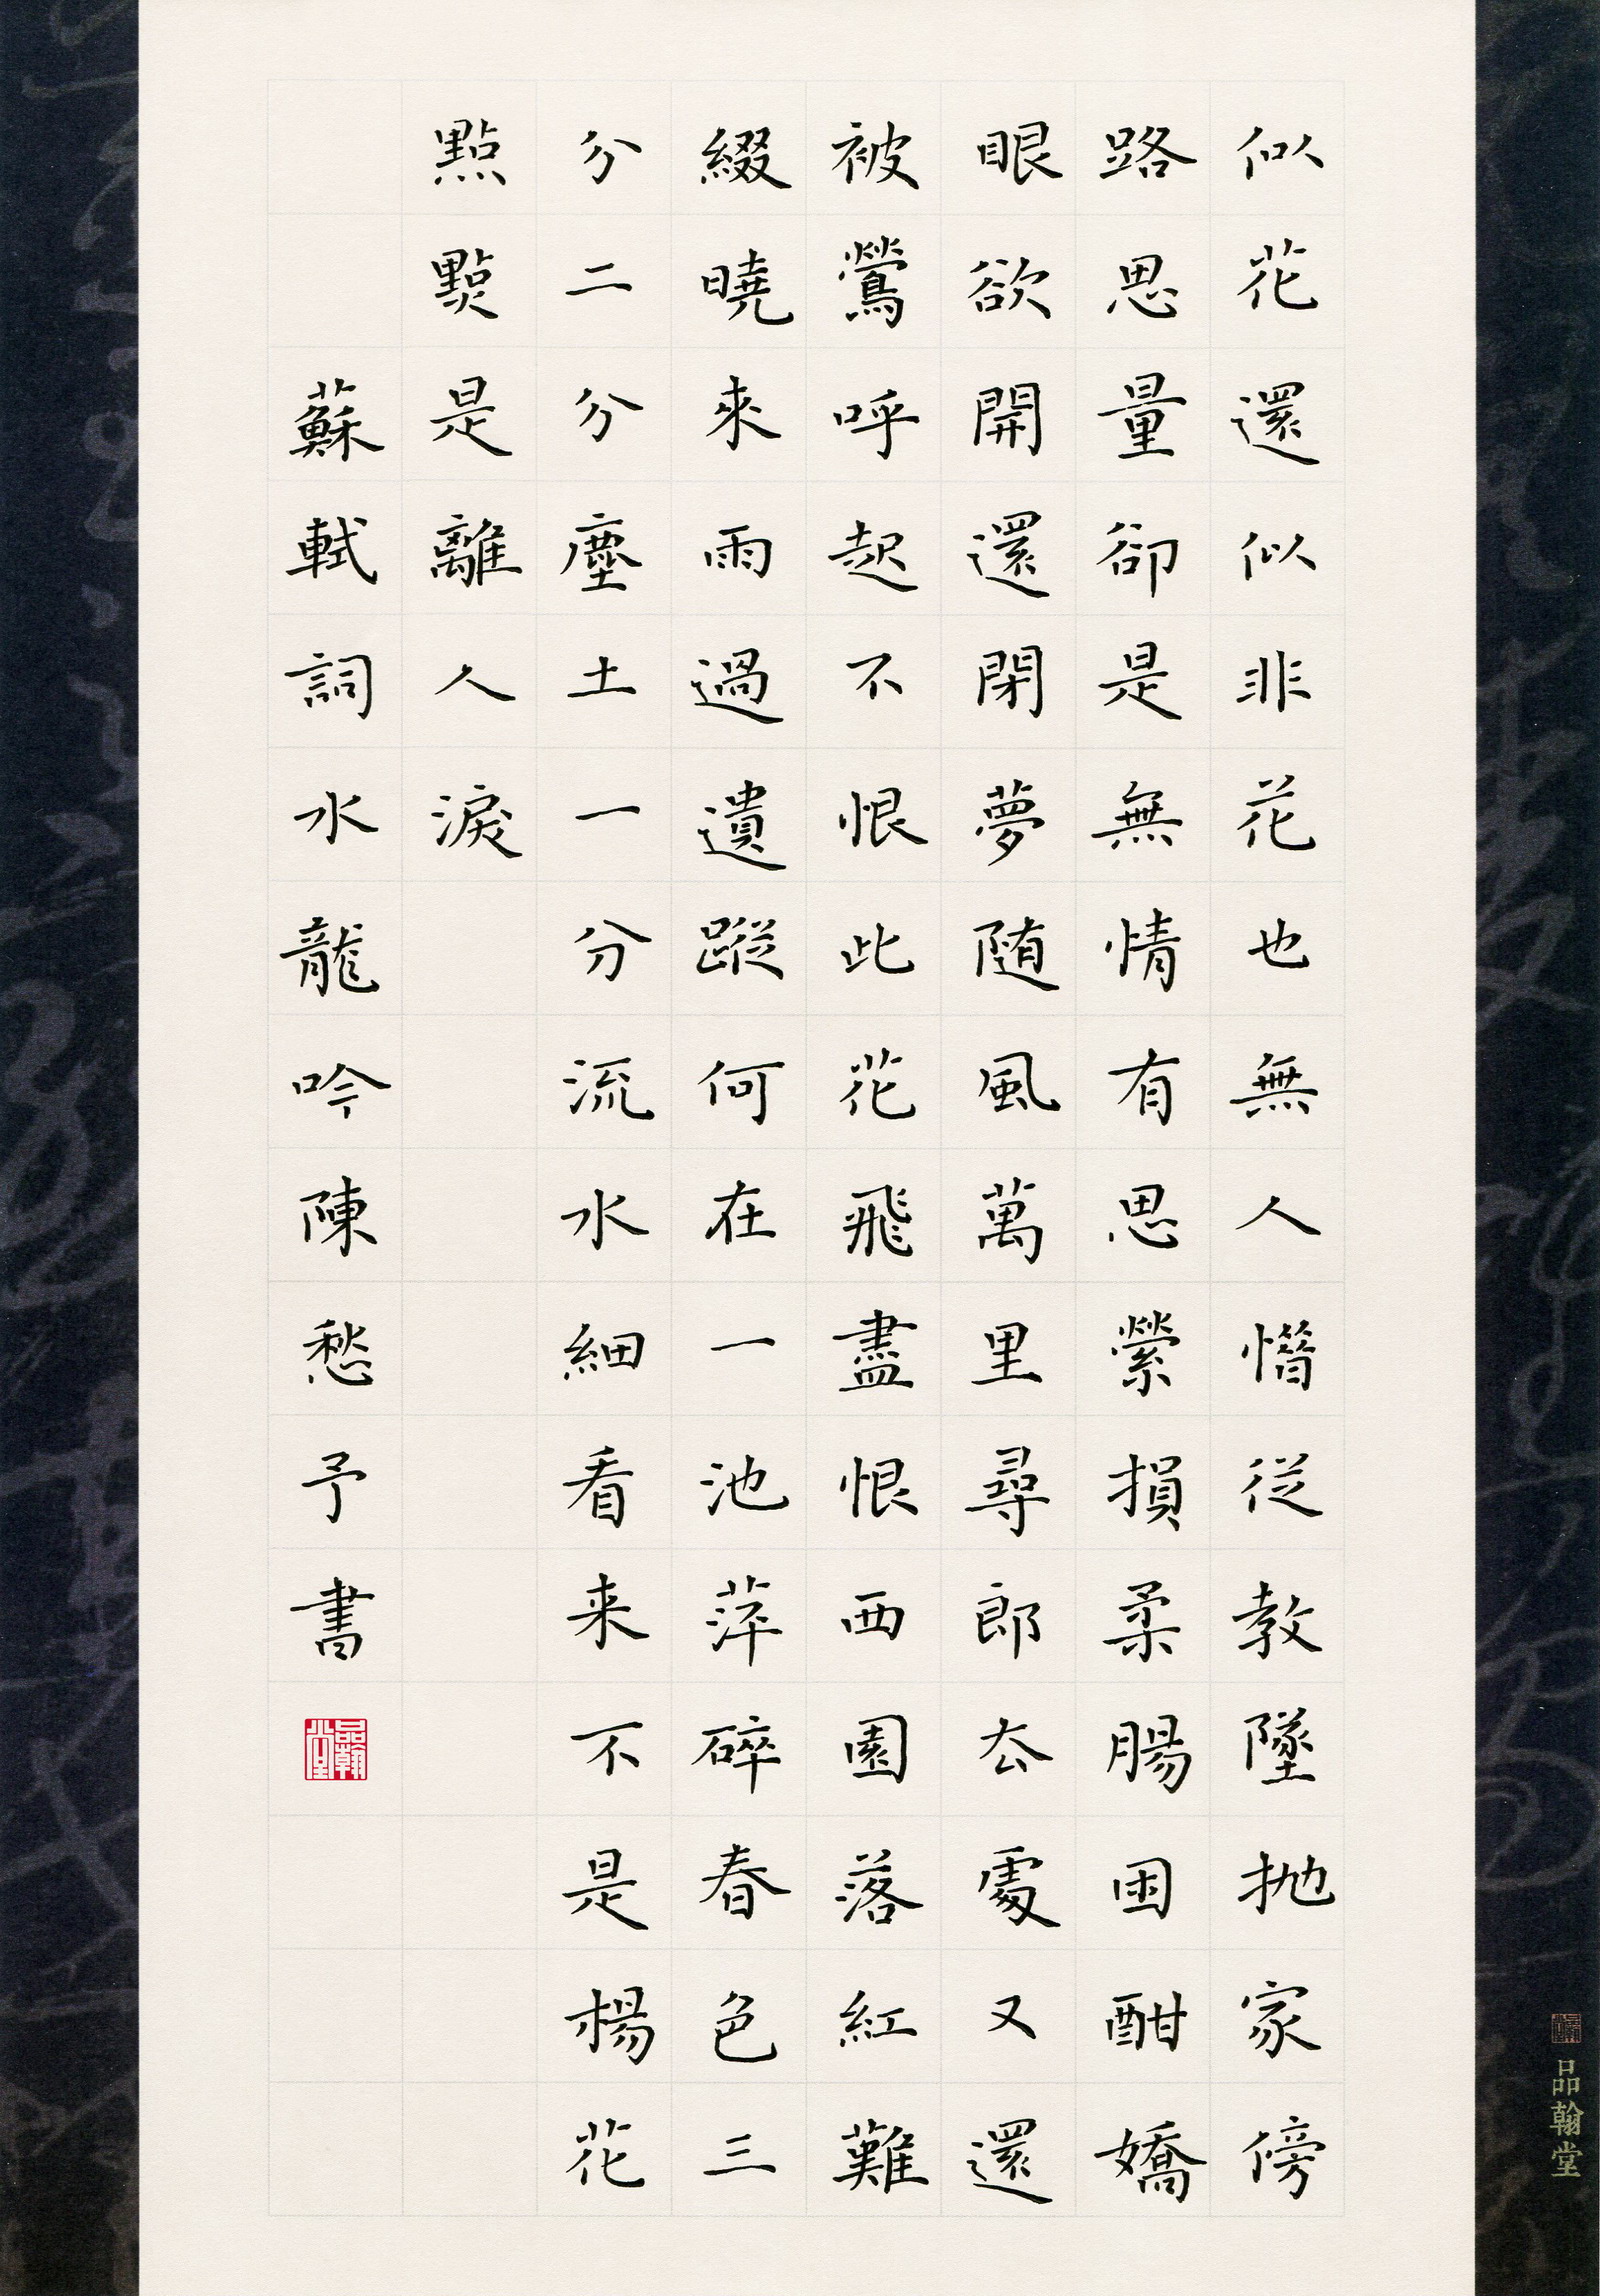 似花還似非花也無人惜從教墜抛家傍
路思量卻是無情有思縈損柔腸困酣嬌
眼欲開還閉夢随風萬里尋郎去處又還
被鶯呼起不恨此花飛盡恨西園落紅難
綴曉來雨過遺蹤何在一池萍碎春色三
分二分塵土一分流水細看来不是楊花
點點是離人淚
蘇軾詞水龍吟陳愁予書
品翰堂
品翰堂